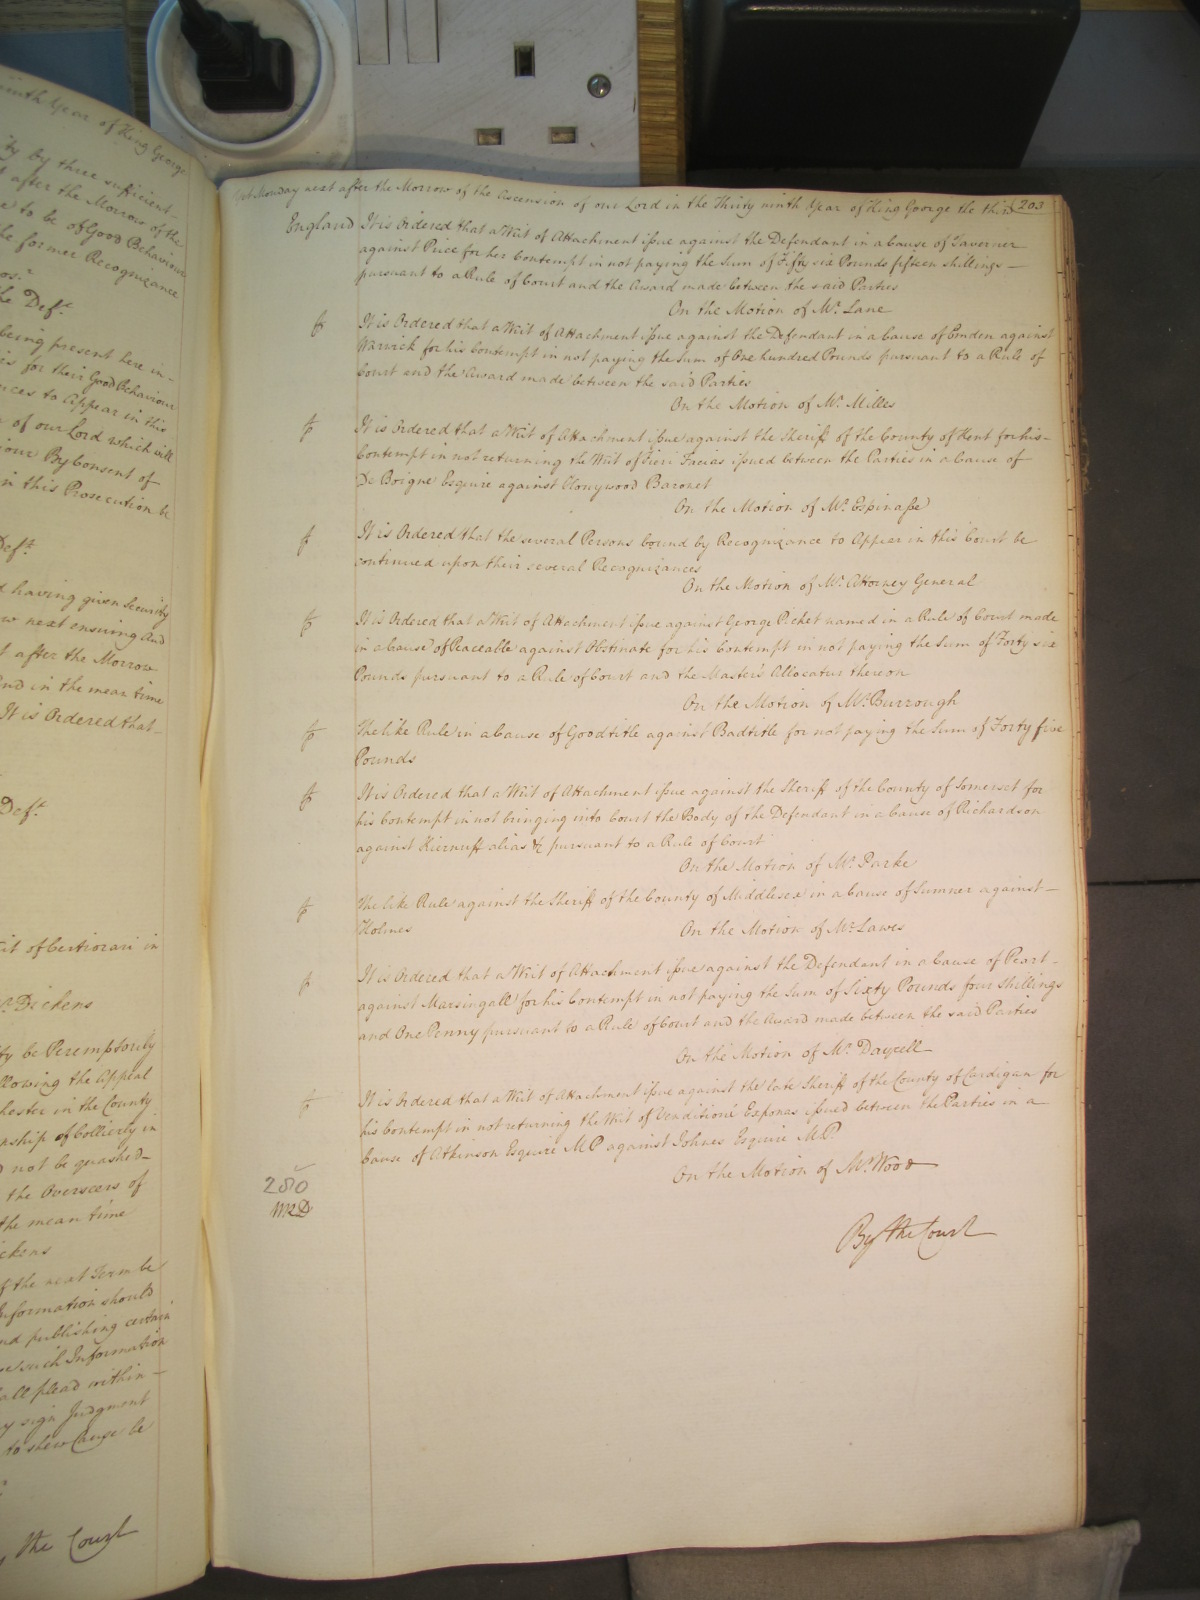 ninth Year of King George
ty by three sufficient
t after the Morrow of the
e to be of Good Behaviour
he former Recognizance
the Def.t
being present here in
is for their Good Behaviour
nces to Appear in this
of our Lord which will
iour By Consent of
n this Prosecution be
Def.t
d having given Security
w next ensuing And
t after the Morrow
And in the mean time
It is Ordered that
Def.t
it of Certiorari in
Dickens
ty be Peremptorily
llowing the Appeal
hester in the County
nship of Collierly in
d not be quashed
the Overseers of
the mean time
ckens
f the next Term be
Information should
nd publishing certain
such Information
all plead within
y sign Judgment
to shew Cause be
the Court
Monday next after the Morrow of the Ascension of our Lord in the Thirty ninth Year of King George the third 203
England It is Ordered that a Writ of Attachment issue against the Defendant in a Cause of Taverner
against Price for her Contempt in not paying the Sum of Fifty six Pounds fifteen shillings
pursuant to a Rule of Court and the Award made between the said Parties
On the Motion of Mr. Lane
It is Ordered that a Writ of Attachment issue against the Defendant in a Cause of Emden against
Warwick for his Contempt in not paying the Sum of One hundred Pounds pursuant to a Rule of
Court and the Award made between the said Parties
On the Motion of Mr. Milles
It is Ordered that a Writ of Attachment issue against the Sheriff of the County of Kent for his
Contempt in not returning the Writ of Fieri Facias issued between the Parties in a Cause of
De Boigne Esquire against Honywood Baronet
On the Motion of Mr. Espinasse
It is Ordered that the several Persons bound by Recognizance to Appear in this Court be
continued upon their several Recognizances
On the Motion of Mr. Attorney General
It is Ordered that a Writ of Attachment issue against George Picket named in a Rule of Court made
in a Cause of Peaceable against Obstinate for his Contempt in not paying the Sum of Forty six
Pounds pursuant to a Rule of Court and the Master's Allocatur thereon
On the Motion of Mr. Burrough
The like Rule in a Cause of Goodtitle against Badtitle for not paying the Sum of Forty five
Pounds
It is Ordered that a Writ of Attachment issue against the Sheriff of the County of Somerset for
his Contempt in not bringing into Court the Body of the Defendant in a Cause of Richardson
against Kiernuff alias &c pursuant to a Rule of Court
On the Motion of Mr. Parke
The like Rule against the Sheriff of the County of Middlesex in a Cause of Sumner against
Holmes On the Motion of Mr. Lawes
It is Ordered that a Writ of Attachment issue against the Defendant in a Cause of Peart
against Marsingall for his Contempt in not paying the Sum of Sixty Pounds four Shillings
and One Penny pursuant to a Rule of Court and the Award made between the said Parties
On the Motion of Mr. Dayrell
It is Ordered that a Writ of Attachment issue against the late Sheriff of the County of Cardigan for
his Contempt in not returning the Writ of Venditioni Exponas issued between the Parties in a
Cause of Atkinson Esquire MP against Johnes Esquire MP.
On the Motion of Mr. Wood
280
By the Court